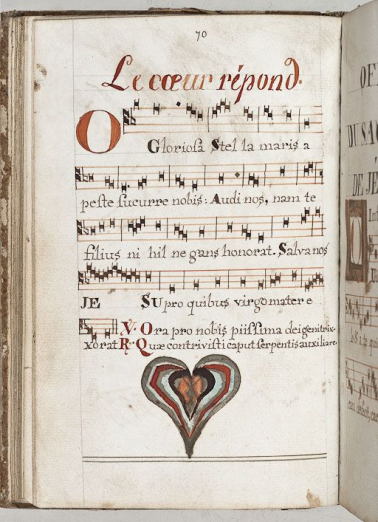 70
Le cœur répond.
O Gloriosa Stel la maris a
peste succurre nobis: Audi nos, nam te
filius ni hil ne gans honorat. Salva nos
JE SU pro quibus virgo mater e
xorat ℣. Ora pro nobis piissima dei genitrix.
℟. Quæ contrivisti caput serpentis auxiliare.